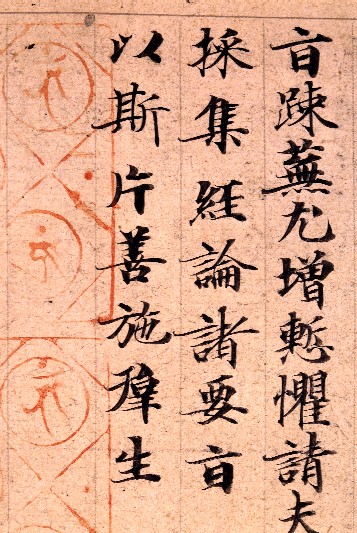 旨踈蕪尤增慙懼請夫
採集経論諸要旨
以斯片善施群生